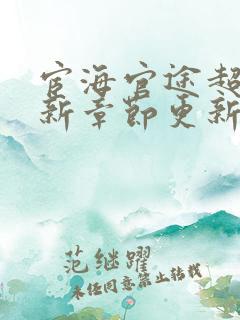 宦海官途超
新章節更新
范继躍
未经同意禁止转载